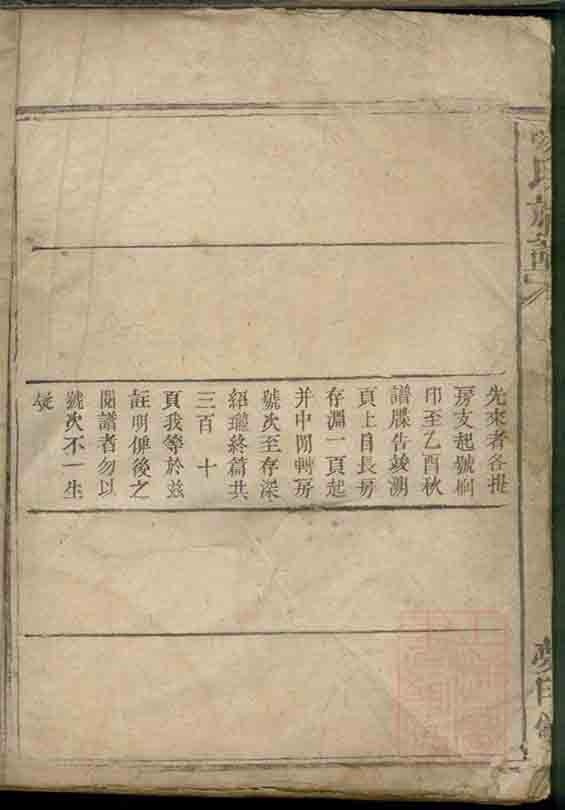 氏族譜
先來者各提
房支起號刷
印至乙酉秋
譜牒告竣溯
頁上自長房
存淵一頁起
并中間轉房
號次至存深
紹聰終篇共
三百 十
頁我等於茲
註明俾後之
閱譜者勿以
號次不一生
疑